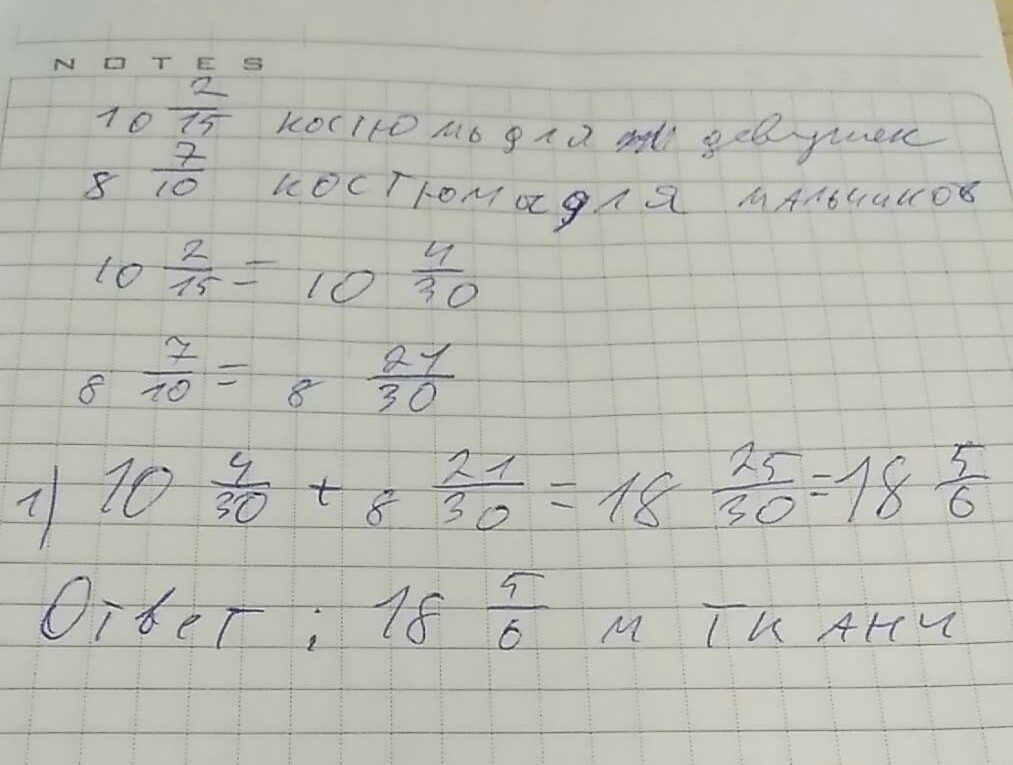 NOTES
10 2/15 костюмы для девушек
8 7/10 костюма для мальчиков
10 2/15 = 10 4/30
8 7/10 = 8 21/30
1) 10 4/30 + 8 21/30 = 18 25/30 = 18 5/6
Ответ: 18 5/6 м ткани